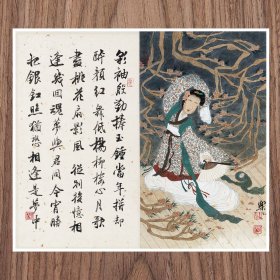 彩袖殷勤捧玉鍾當年拚却
醉顏紅舞低楊柳樓心月歌
盡桃花扇影風從別後憶相
逢幾回魂夢與君同今宵賸
把銀釭照猶恐相逢是夢中